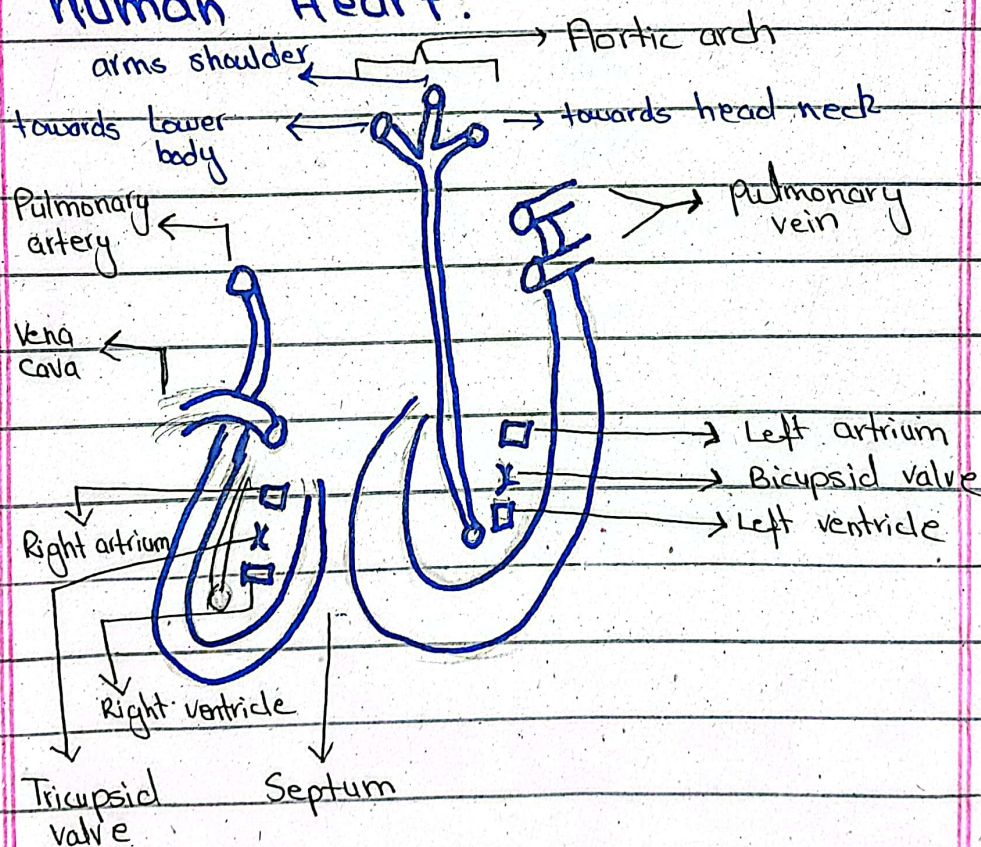 Human Heart.
Aortic arch
arms shoulder
towards Lower
body
towards head neck
Pulmonary
artery
Pulmonary
vein
Vena
cava
Left artrium
Bicupsid valve
Left ventricle
Right artrium
Right ventricle
Tricupsid
valve
Septum